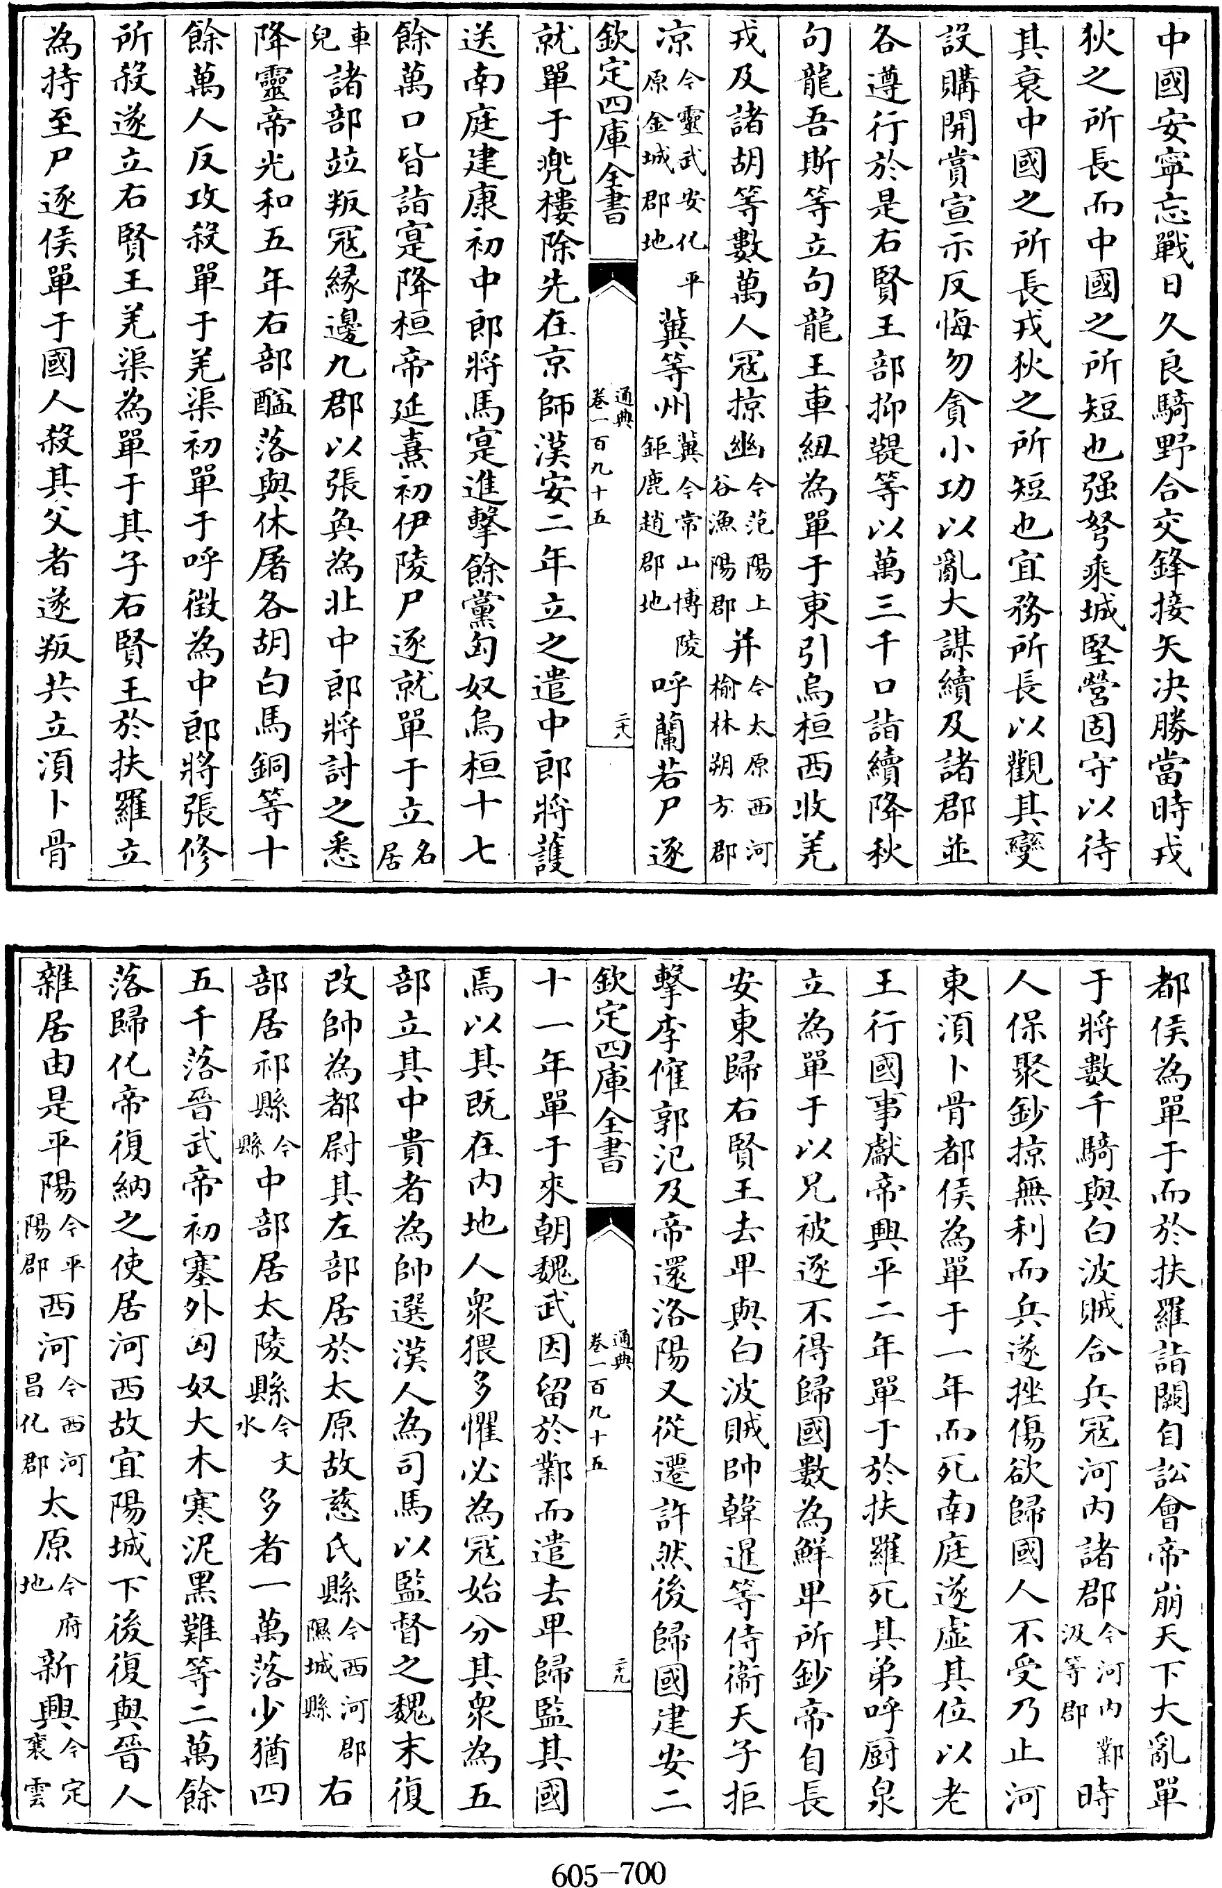 中國安寧忘戰日久良騎野合交鋒接矢决勝當時戎
狄之所長而中國之所短也强弩乘城堅營固守以待
其衰中國之所長戎狄之所短也宜務所長以觀其變
設購開賞宣示反悔勿貪小功以亂大謀續及諸郡並
各遵行於是右賢王部抑鞮等以萬三千口詣續降秋
句龍吾斯等立句龍王車紐為單于東引烏桓西收羌
戎及諸胡等數萬人冦掠幽今范陽上谷漁陽郡并今太原西河榆林朔方郡
凉今靈武安化平原金城郡地冀等州冀今常山博陵鉅鹿趙郡地呼蘭若尸逐
欽定四庫全書
通典
卷一百九十五
二十八
就單于兠樓除先在京師漢安二年立之遣中郎將䕶
送南庭建康初中郎將馬寔進擊餘黨匈奴烏桓十七
餘萬口皆詣寔降桓帝延熹初伊陵尸逐就單于立名居
車兒諸部竝叛冦緣邊九郡以張奐為北中郎將討之悉
降靈帝光和五年右部醢落與休屠各胡白馬銅等十
餘萬人反攻殺單于羌渠初單于呼徵為中郎將張修
所殺遂立右賢王羌渠為單于其子右賢王於扶羅立
為持至尸逐侯單于國人殺其父者遂叛共立湏卜骨
都侯為單于而於扶羅詣闕自訟會帝崩天下大亂單
于將數千騎與白波賊合兵冦河内諸郡今河内鄴汲等郡時
人保聚鈔掠無利而兵遂挫傷欲歸國人不受乃止河
東湏卜骨都侯為單于一年而死南庭遂虚其位以老
王行國事獻帝興平二年單于於扶羅死其弟呼廚泉
立為單于以兄被逐不得歸國數為鮮卑所鈔帝自長
安東歸右賢王去卑與白波賊帥韓暹等侍衞天子拒
擊李傕郭汜及帝還洛陽又從遷許然後歸國建安二
欽定四庫全書
通典
卷一百九十五
二十九
十一年單于來朝魏武因留於鄴而遣去卑歸監其國
焉以其既在内地人衆猥多懼必為冦始分其衆為五
部立其中貴者為帥選漢人為司馬以監督之魏末復
改帥為都尉其左部居於太原故慈氏縣今西河郡隰城縣右
部居祁縣今縣中部居太陵縣今文水多者一萬落少猶四
五千落晉武帝初塞外匈奴大木寒泥黑難等二萬餘
落歸化帝復納之使居河西故宜陽城下後復與晉人
雜居由是平陽今平陽郡西河今西河昌化郡太原今府地新興今定襄雲
605-700